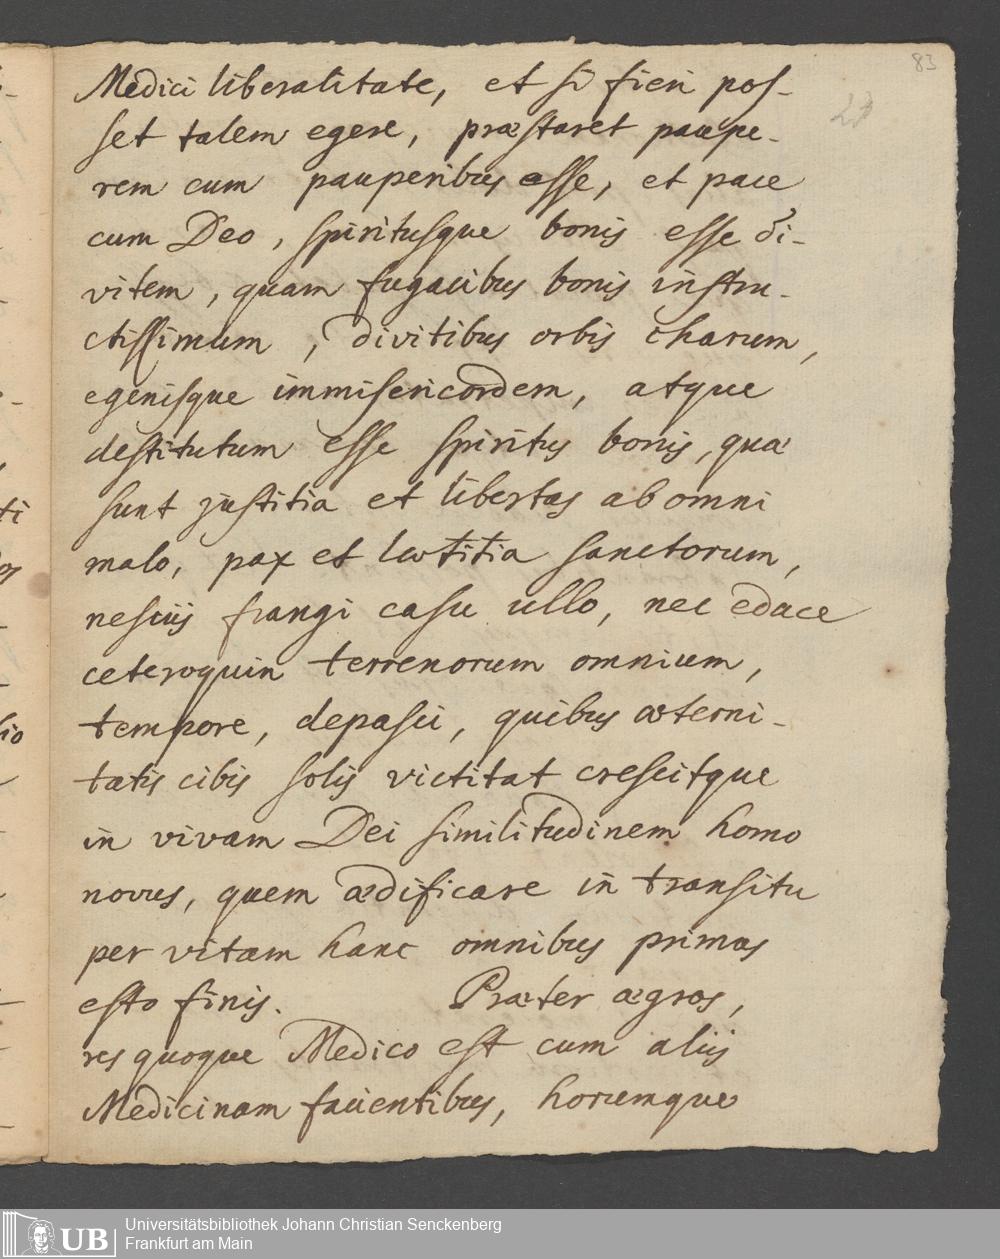 83
23
Medici liberalitate, et si fieri pos-
set talem egere, præstaret paupe-
rem cum pauperibus esse, et pace
cum Deo, spiritusque bonis esse di-
vitem, quam fugacibus bonis instru-
ctissimum, divitibus orbis charum,
egenisque immisericordem, atque
destitutum esse spiritus bonis, quæ
sunt justitia et libertas ab omni
malo, pax et lætitia sanctorum,
nescij frangi casu ullo, nec edace
ceteroquin terrenorum omnium,
tempore, depasci, quibus æterni-
tatis cibis solis victitat crescitque
in vivam Dei similitudinem homo
novus, quem ædificare in transitu
per vitam hanc omnibus primas
esto finis. Præter ægros,
res quoque Medico est cum alijs
Medicinam facientibus, horumque
UB
Universitätsbibliothek Johann Christian Senckenberg
Frankfurt am Main